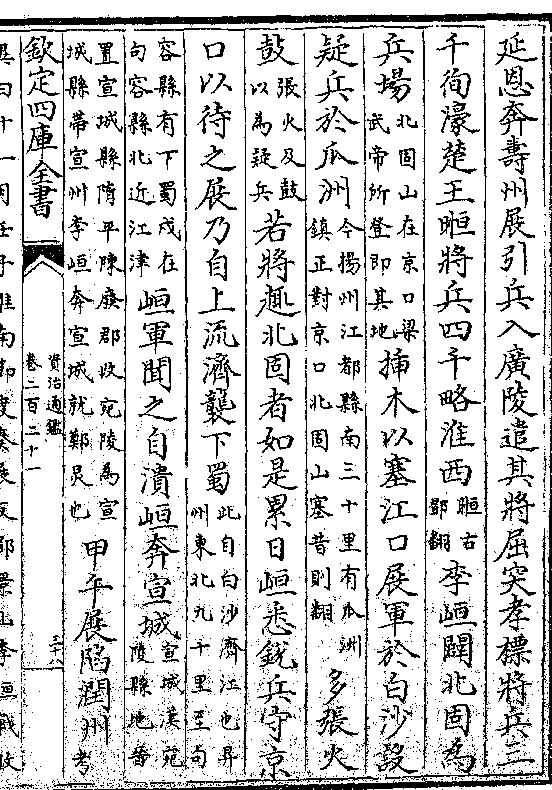 延恩奔壽州展引兵入廣陵遣其將屈突孝標將兵三
千徇濠楚王暅將兵四千略淮西暅右鄧翻李峘闢北固為
兵場北固山在京口梁武帝所登即其地插木以塞江口展軍於白沙設
疑兵於瓜洲今揚州江都縣南三十里有瓜洲鎮正對京口北固山塞昔則翻多張火
鼓張火及鼓以為疑兵若將趣北固者如是累日峘悉銳兵守京
口以待之展乃自上流濟襲下蜀此自白沙濟江也昇州東北九十里至句
容縣有下蜀戍在句容縣北近江津峘軍聞之自潰峘奔宣城宣城漢宛陵縣地晉
置宣城縣隋平陳廢郡改宛陵為宣城縣帶宣州李峘奔宣城就鄭炅也甲午展陷潤州考
欽定四庫全書
資治通鑑
卷二百二十一
三十八